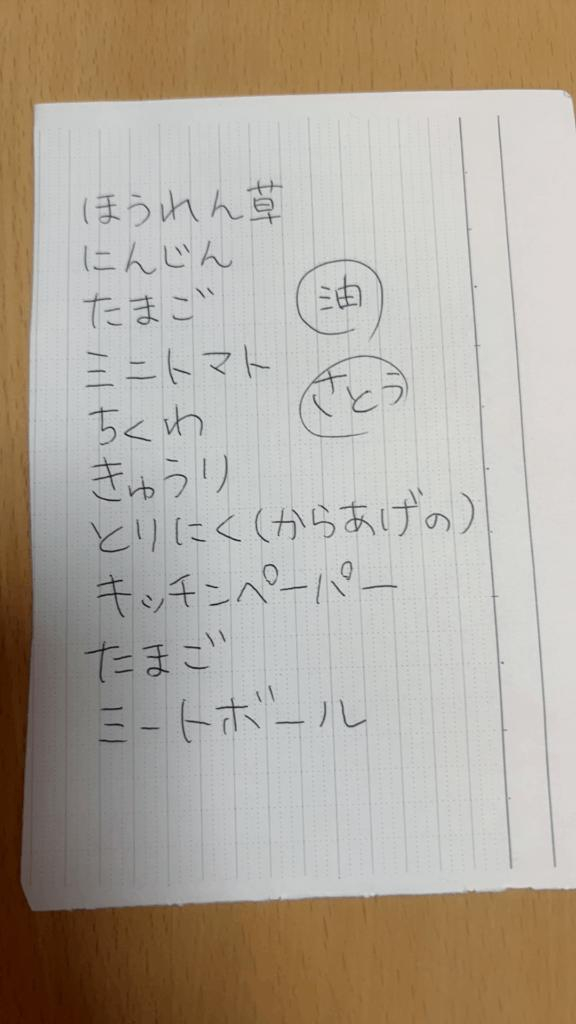 ほうれん草
にんじん
たまご
油
ミニトマト
さとう
ちくわ
きゅうり
とりにく(からあげの)
キッチンペーパー
たまご
ミートボール